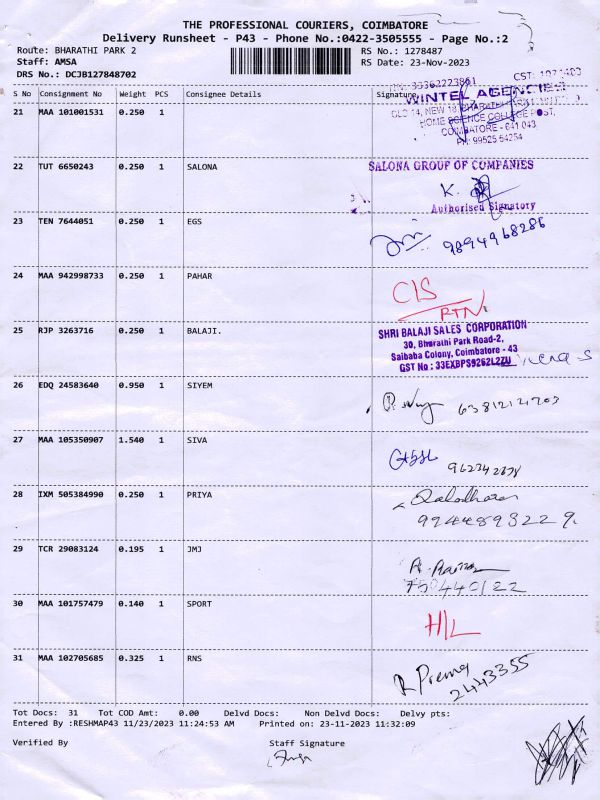 THE PROFESSIONAL COURIERS, COIMBATORE
Delivery Runsheet - P43 - Phone No.:0422-3505555 - Page No.:2
Route: BHARATHI PARK 2
RS No.: 1278487
Staff: AMSA
RS Date: 23-Nov-2023
DRS No.: DCJB127848702
S No Consignment No Weight PCS Consignee Details Signature
21 MAA 101001531 0.250 1
WINTEL AGENCIES
HOME SCIENCE COLLEGE POST,
COIMBATORE - 641 043
PH: 99525 54254
22 TUT 6650243 0.250 1 SALONA
SALONA GROUP OF COMPANIES
K.
Authorised Signatory
23 TEN 7644051 0.250 1 EGS
9894968286
24 MAA 942998733 0.250 1 PAHAR
CIS
RTN
25 RJP 3263716 0.250 1 BALAJI.
SHRI BALAJI SALES CORPORATION
30, Bharathi Park Road-2,
Saibaba Colony, Coimbatore - 43
GST No : 33EXBPS9262L2ZU
26 EDQ 24583640 0.950 1 SIYEM
27 MAA 105350907 1.540 1 SIVA
28 IXM 505384990 0.250 1 PRIYA
9944893229
29 TCR 29083124 0.195 1 JMJ
30 MAA 101757479 0.140 1 SPORT
H/L
31 MAA 102705685 0.325 1 RNS
R Prema
2443355
Tot Docs: 31 Tot COD Amt: 0.00 Delvd Docs: Non Delvd Docs: Delvy pts:
Entered By :RESHMAP43 11/23/2023 11:24:53 AM Printed on: 23-11-2023 11:32:09
Verified By Staff Signature